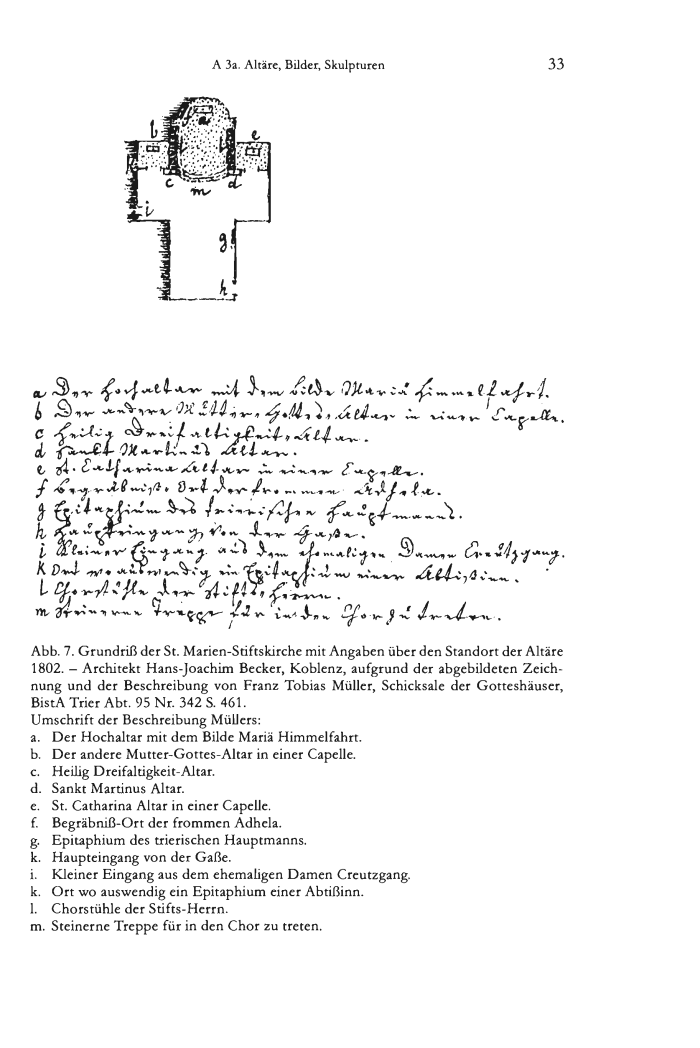 A 3a. Altäre, Bilder, Skulpturen 33
l a e
k l l
c m d
i
g
h
a Der Hochaltar mit dem Bilde Mariä Himmelfahrt.
b Der andere Mutter-Gottes-Altar in einer Capelle.
c Heilig Dreifaltigkeit-Altar.
d Sankt Martinus Altar.
e St. Catharina Altar in einer Capelle.
f Begräbniß-Ort der frommen Adhela.
g Epitaphium des trierischen Hauptmanns.
h Haupteingang von der Gaße.
i Kleiner Eingang aus dem ehemaligen Damen Creutzgang.
k Ort wo auswendig ein Epitaphium einer Abtißinn.
l Chorstühle der Stifts-Herrn.
m Steinerne Treppe für in den Chor zu treten.
Abb. 7. Grundriß der St. Marien-Stiftskirche mit Angaben über den Standort der Altäre
1802. – Architekt Hans-Joachim Becker, Koblenz, aufgrund der abgebildeten Zeich-
nung und der Beschreibung von Franz Tobias Müller, Schicksale der Gotteshäuser,
BistA Trier Abt. 95 Nr. 342 S. 461.
Umschrift der Beschreibung Müllers:
a. Der Hochaltar mit dem Bilde Mariä Himmelfahrt.
b. Der andere Mutter-Gottes-Altar in einer Capelle.
c. Heilig Dreifaltigkeit-Altar.
d. Sankt Martinus Altar.
e. St. Catharina Altar in einer Capelle.
f. Begräbniß-Ort der frommen Adhela.
g. Epitaphium des trierischen Hauptmanns.
k. Haupteingang von der Gaße.
i. Kleiner Eingang aus dem ehemaligen Damen Creutzgang.
k. Ort wo auswendig ein Epitaphium einer Abtißinn.
l. Chorstühle der Stifts-Herrn.
m. Steinerne Treppe für in den Chor zu treten.